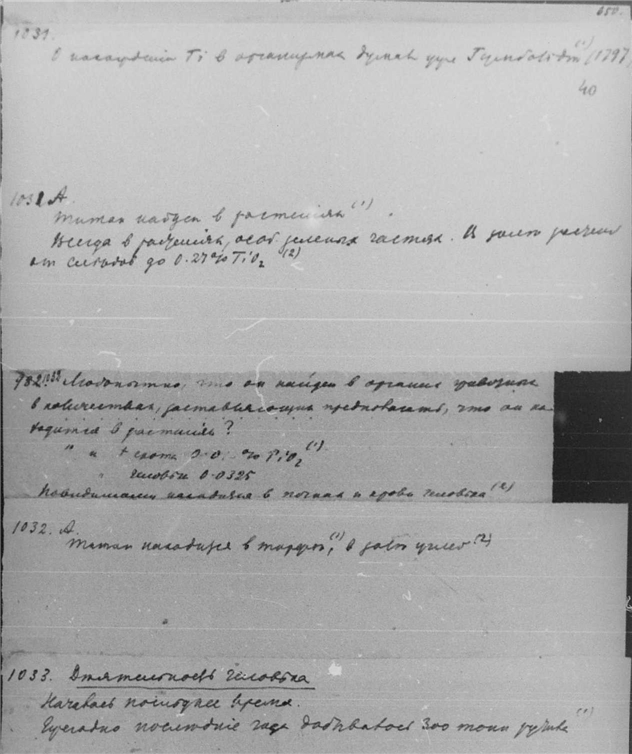 650.
1031.
О нахождении Ti в организмах думал уже Гумбольдт (1) (1797)
40
1031 А.
Титан найден в растениях (1)
Всегда в растениях, особ. зеленых частях. В золе растений
от следов до 0.27% TiO2 (2)
1032 Любопытно, что он найден в органах животных
в количествах, заставляющих предполагать, что он на-
ходится в растениях?
" " скота 0.0 % TiO2 (1)
человека 0.0325
Повидимому находится в почках и крови человека (2)
1032. А.
Титан находится в торфе (1), в золе углей (2)
1033. Деятельность человека
Началась последнее время.
Ежегодно последние года добывалось 300 тонн рутила (1)